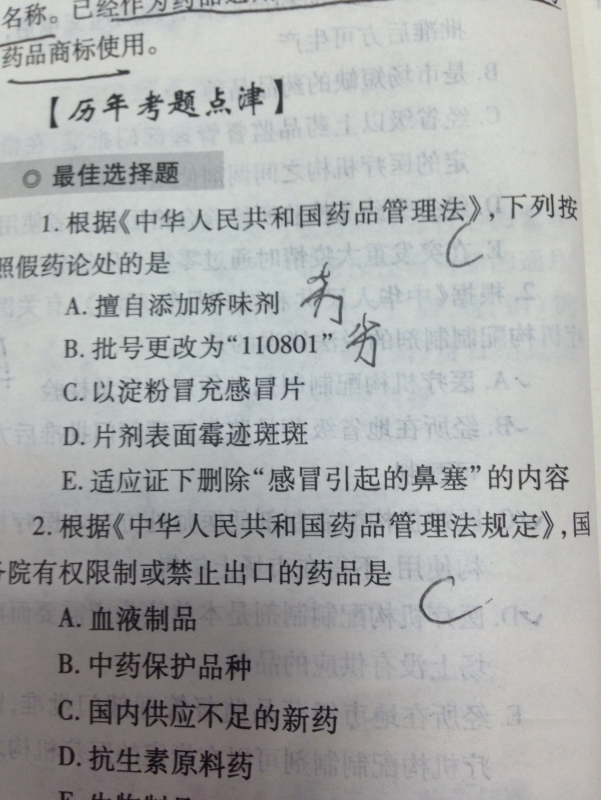 名称。已经作为药品通
药品商标使用。
【历年考题点津】
◎ 最佳选择题
1.根据《中华人民共和国药品管理法》,下列按
照假药论处的是 C
A.擅自添加矫味剂
B.批号更改为“110801” 劣
C.以淀粉冒充感冒片
D.片剂表面霉迹斑斑
E.适应证下删除“感冒引起的鼻塞”的内容
2.根据《中华人民共和国药品管理法规定》,国
务院有权限制或禁止出口的药品是 C
A.血液制品
B.中药保护品种
C.国内供应不足的新药
D.抗生素原料药
E.生物制品